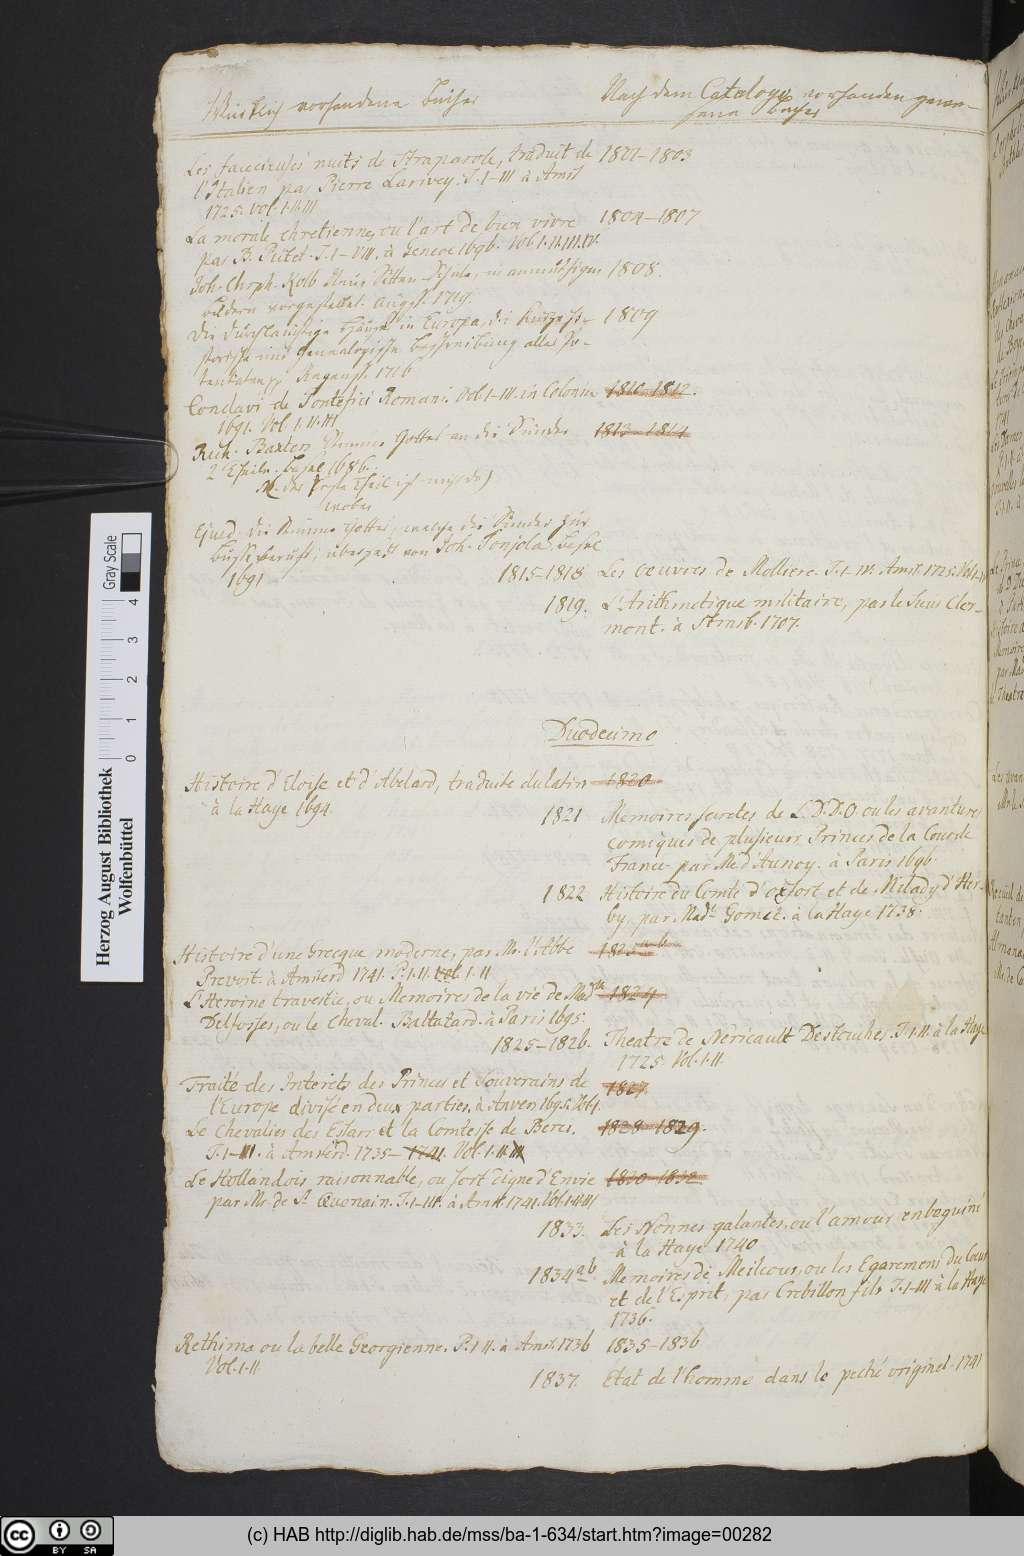 Würklich vorhandene Bücher
Nach dem Catalogo vorhanden gewe-
sene Bücher
Les facecieuses nuits de Straparole, traduit de 1801–1803
l'Italien par Pierre Larivey. T. I–III à Amst
1725. Vol. I. II. III
La morale chretienne, ou l'art de bien vivre 1804–1807
par B. Pictet. T. I–VIII. à Geneve 1696. Vol. I. II. III. IV.
Joh. Chrph. Kolb Neue Sitten-Schule, in anmuthigen 1808.
bildern vorgestellet. Augsp. 1719.
Die durchlauchtige Häuser in Europa, d. i. kurze hi- 1809
storische und Genealogische Beschreibung aller So-
1716
Conclavi de Pontefici Romani. Vol. I–III. in Colonia 1810–1812.
1691. Vol. I. II. III
Rich. Baxters Stimme Gottes an die Sünder 1813–1814
2 Theile. Basel 1686.
Ejusd. die Stimme Gottes, welche die Sünder zur
Busse beruft, übersezt von Joh. Tonjola. Basel
1691
1815–1818 Les oeuvres de Molliere. T. I–IV. Amst. 1725. Vol. I–IV
1819. L'Arithmetique militaire, par le Sieur Cler-
mont. à Strasb. 1707.
Duodecimo
Histoire d'Eloise et d'Abelard, traduite du latin 1820
à la Haye 1694.
1821 Memoires secretes de L. D. D. O. ou les avantures
comiques de plusieurs Princes de la Cour de
France par Me d'Aunoy. à Paris 1696.
1822 Histoire du Comte d'Oxfort et de Milady d'Her-
by, par Made Gomez. à la Haye 1738.
Histoire d'une Grecque moderne, par Mr. l'Abbe 1823 a-b
Prevost. à Amsterd 1741. P. I. II. Vol. I. II
L'Heroine travestie, ou Memoires de la vie de Madlle 1824
Delfosses, ou le Cheval. Baltazard. à Paris 1695.
1825–1826. Theatre de Nericault Destouches. T. I. II. à la Haye
1725. Vol. I. II
Traité des Interets des Princes et Souverains de 1827
l'Europe divisé en deux parties. à Anvers 1695. Vol. I.
Le Chevalier des Essars et la Comtesse de Berci. 1828–1829.
T. I–III. à Amsterd. 1735–1741. Vol. I. II. III
Le Hollandois raisonnable, ou sort digne d'Envie 1830–1832
par Mr. de St. Quenain. T. I–III. à Amst. 1741. Vol. I. II. III
1833. Les Nonnes galantes, ou l'amour enbeguiné
à la Haye 1740
1834 a b Memoires de Meilcour, ou les Egaremens du Coeur
et de l'Esprit, par Crebillon fils T. I–III à la Haye
1736.
Rethima ou la belle Georgienne. P. I. II. à Amst. 1736 1835–1836
Vol. I. II
1837. Etat de l'homme dans le peché originel. 1741
Herzog August Bibliothek
Wolfenbüttel
Gray Scale
0 1 2 3 4
(c) HAB http://diglib.hab.de/mss/ba-1-634/start.htm?image=00282
cc BY SA